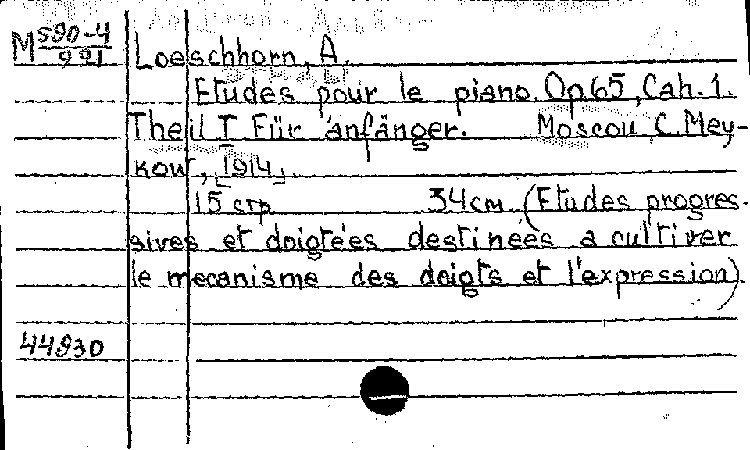 М 590-4
991
Loeschhorn, A.
Etudes pour le piano. Op 65, Cah. 1.
Theil I Für anfänger. Moscou, C. Mey-
kow, [1914].
15 стр 34 см (Etudes progres-
sives et doigtées destineès a cultiver
le mecanisme des doigts et l'expression)
44930